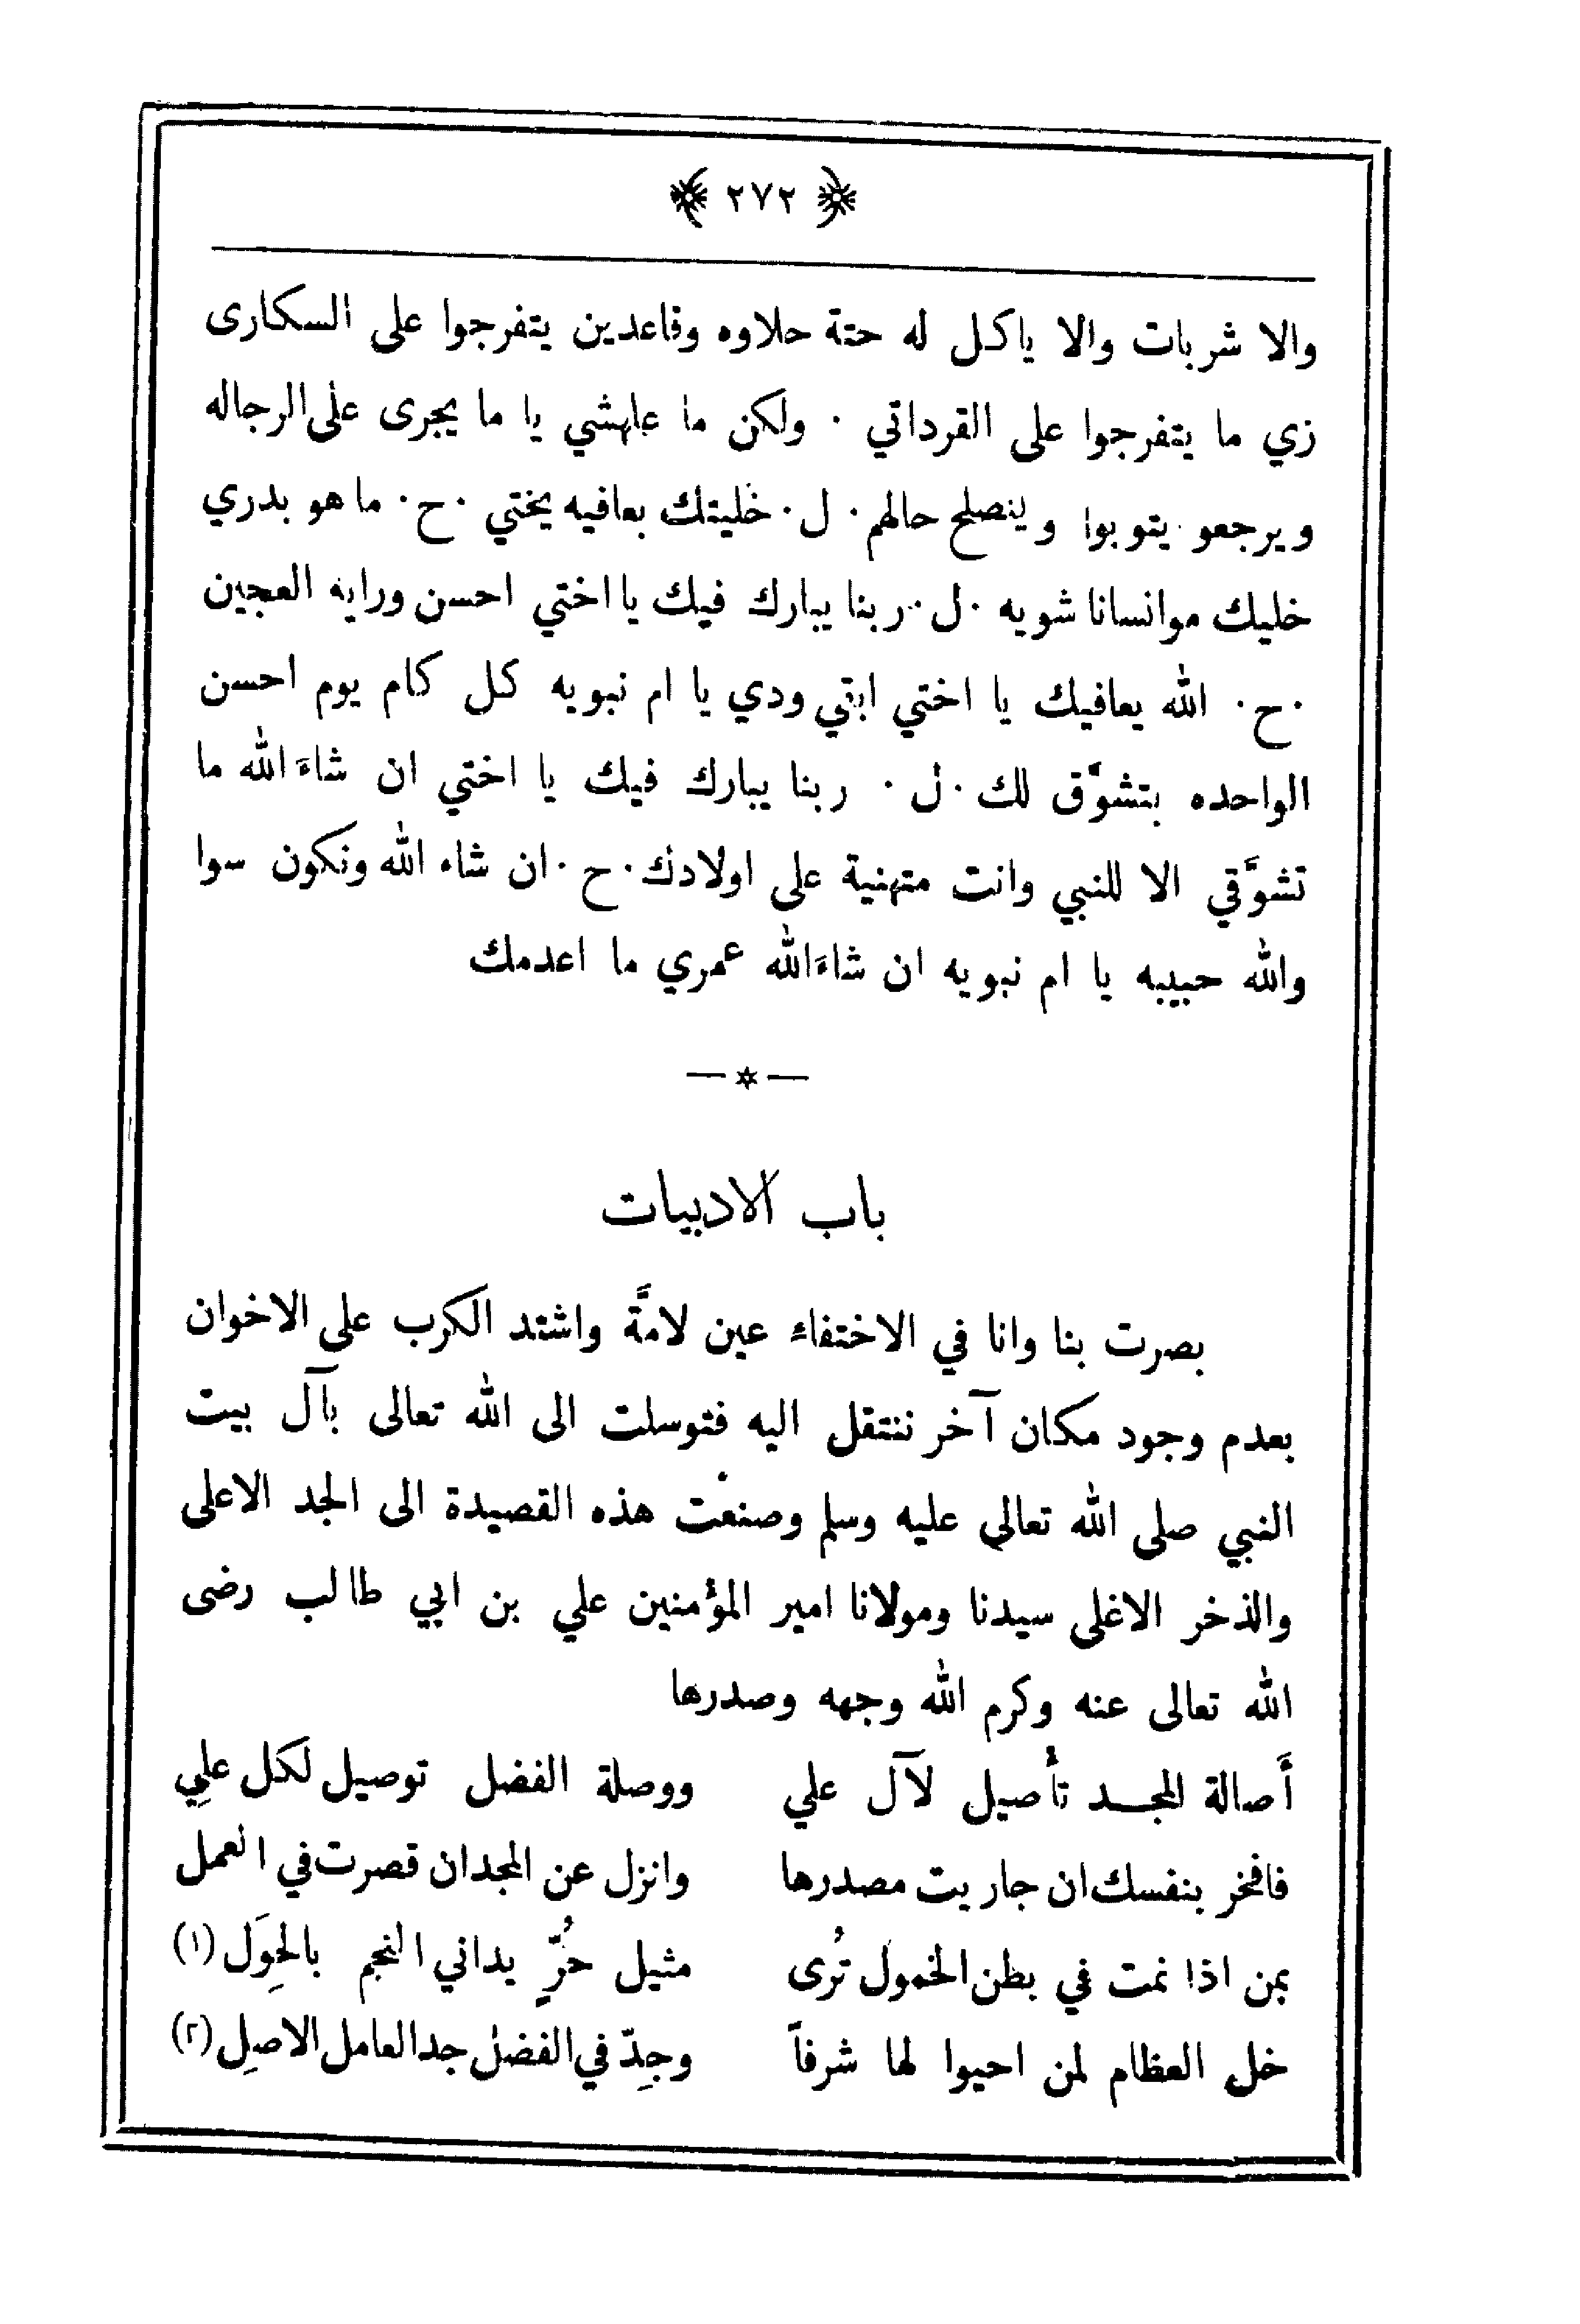 ﴿ ٢٧٢ ﴾
والا شربات والا ياكل له حتة حلاوه وقاعدين يتفرجوا على السكارى
زي ما يتفرجوا على القرداتي ٠ ولكن ما علهشي يا ما يجرى على الرجاله
ويرجعو يتوبوا وينصلح حالهم ٠ ل ٠ خليتك بعافيه يختي ٠ ح ٠ ما هو بدري
خليك موانسانا شويه ٠ ل ٠ ربنا يبارك فيك يا اختي احسن ورايه العجين
٠ ح ٠ الله يعافيك يا اختي ابتي ودي يا ام نبويه كل كام يوم احسن
الواحده بتشوَّق لك ٠ ل ٠ ربنا يبارك فيك يا اختي ان شاءَ الله ما
تشوَّقي الا للنبي وانت متهنية على اولادك ٠ ح ٠ ان شاء الله ونكون سوا
والله حبيبه يا ام نبويه ان شاءَ الله عمري ما اعدمك
— * —
باب الادبيات
بصرت بنا وانا في الاختفاء عين لامَّة واشتد الكرب على الاخوان
بعدم وجود مكان آخر ننتقل اليه فتوسلت الى الله تعالى بآل بيت
النبي صلى الله تعالي عليه وسلم وصنعْت هذه القصيدة الى الجد الاعلى
والذخر الاغلى سيدنا ومولانا امير المؤمنين علي بن ابي طالب رضى
الله تعالى عنه وكرم الله وجهه وصدرها
أَصالة المجد تأصيل لآل علي ووصلة الفضل توصيل لكل علِي
فافخر بنفسك ان جاريت مصدرها وانزل عن المجد ان قصرت في العمل
بمن اذا نمت في بطن الخمول تُرى مثيل حُرٍّ يداني النجم بالحِوَل (١)
خل العظام لمن احيوا لها شرفاً وجِدّ في الفضل جد العامل الاصلِ (٢)